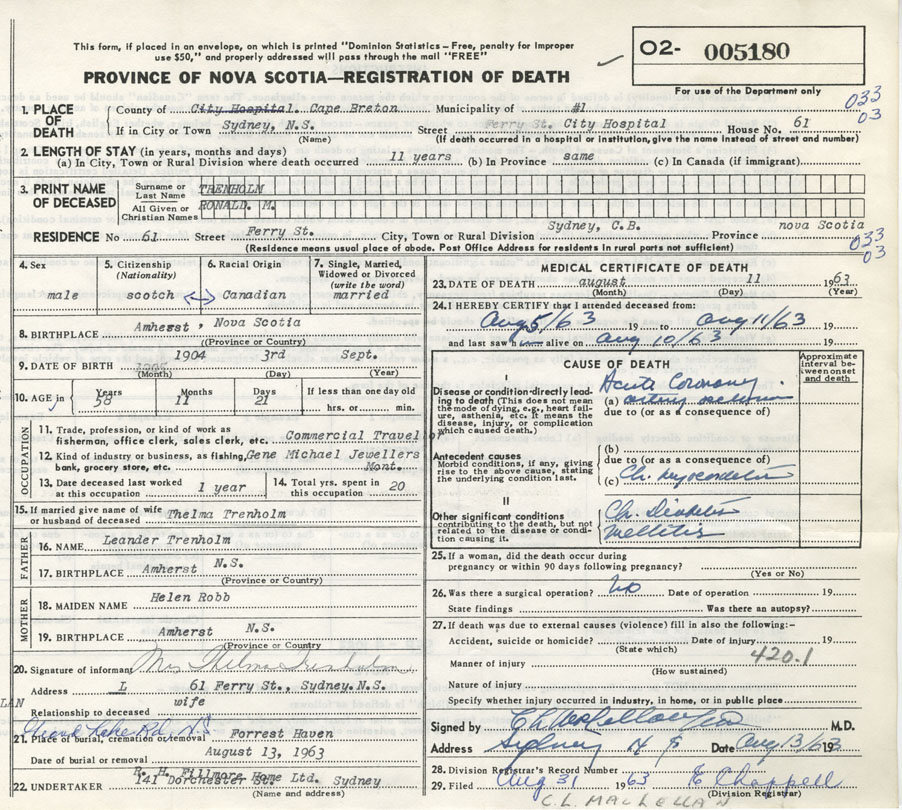 This form, if placed in an envelope, on which is printed "Dominion Statistics – Free, penalty for Improper
use $50," and properly addressed will pass through the mail "FREE"
O2- 005180
PROVINCE OF NOVA SCOTIA—REGISTRATION OF DEATH
For use of the Department only
033
03
1. PLACE OF DEATH
County of City Hospital. Cape Breton Municipality of #1
If in City or Town Sydney, N.S. Street Ferry St. City Hospital House No. 61
(Name) (If death occurred in a hospital or institution, give the name instead of street and number)
2. LENGTH OF STAY (in years, months and days)
(a) In City, Town or Rural Division where death occurred 11 years (b) In Province same (c) In Canada (if immigrant)
3. PRINT NAME OF DECEASED
Surname or Last Name TRENHOLM
All Given or Christian Names RONALD. M.
RESIDENCE No 61 Street Ferry St. City, Town or Rural Division Sydney, C.B. Province nova Scotia
(Residence means usual place of abode. Post Office Address for residents in rural parts not sufficient)
033
03
4. Sex male
5. Citizenship (Nationality) scotch
6. Racial Origin Canadian
7. Single, Married, Widowed or Divorced (write the word) married
8. BIRTHPLACE Amherst, Nova Scotia
(Province or Country)
9. DATE OF BIRTH 1904 3rd Sept.
(Month) (Day) (Year)
10. AGE in Years 58 Months 11 Days 21 If less than one day old
hrs. or min.
OCCUPATION
11. Trade, profession, or kind of work as
fisherman, office clerk, sales clerk, etc. Commercial Travellor
12. Kind of industry or business, as fishing, Gene Michael Jewellers
bank, grocery store, etc. Mont.
13. Date deceased last worked at this occupation 1 year
14. Total yrs. spent in this occupation 20
15. If married give name of wife or husband of deceased Thelma Trenholm
FATHER
16. NAME Leander Trenholm
17. BIRTHPLACE Amherst N.S.
(Province or Country)
MOTHER
18. MAIDEN NAME Helen Robb
19. BIRTHPLACE Amherst N.S.
(Province or Country)
20. Signature of informant Mrs Thelma Trenholm
Address L 61 Ferry St., Sydney.N.S.
LAN
Relationship to deceased wife
21. Place of burial, cremation or removal Forrest Haven
Date of burial or removal August 13, 1963
22. UNDERTAKER R. H. Fillmore Home Ltd.
141 Dorchester St. Sydney
(Name and address)
MEDICAL CERTIFICATE OF DEATH
23. DATE OF DEATH august 11 1963
(Month) (Day) (Year)
24. I HEREBY CERTIFY that I attended deceased from:
Aug 5/63 19 to Aug 11/63 19
and last saw h alive on Aug 10/63 19
CAUSE OF DEATH
Approximate interval between onset and death
I
Disease or condition directly leading to death (This does not mean the mode of dying, e.g., heart failure, asthenia, etc. It means the disease, injury, or complication which caused death.)
Acute Coronary
(a)
due to (or as a consequence of)
Antecedent causes
Morbid conditions, if any, giving rise to the above cause, stating the underlying condition last.
(b)
due to (or as a consequence of)
(c) Ch. Myocarditis
II
Other significant conditions
contributing to the death, but not related to the disease or condition causing it.
Ch. Diabetes
Mellitis
25. If a woman, did the death occur during
pregnancy or within 90 days following pregnancy?
(Yes or No)
26. Was there a surgical operation? No Date of operation 19
State findings Was there an autopsy?
27. If death was due to external causes (violence) fill in also the following:-
Accident, suicide or homicide? Date of injury 19
(State which)
420.1
Manner of injury
(How sustained)
Nature of injury
Specify whether injury occurred in Industry, in home, or in public place
Signed by M.D.
Address Sydney N S Date Aug 13/63 19
28. Division Registrar's Record Number
29. Filed Aug 31 1963 E Chappell
(Division Registrar)
C.L. MACLELLAN